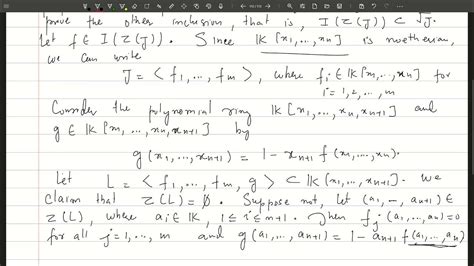 prove the other inclusion, that is, I(Z(J)) ⊂ √J.
Let f ∈ I(Z(J)). Since K[x1,...,xn] is noetherian,
we can write
J = <f1,..., fm>, where fi ∈ K[x1,...,xn] for
i=1,2,...,m
Consider the polynomial ring K[x1,...,xn,xn+1] and
g ∈ K[x1,...,xn,xn+1] by
g(x1,...,xn+1) = 1 - xn+1 f(x1,...,xn).
Let L = <f1,..., fm, g> ⊂ K[x1,...,xn+1]. We
claim that Z(L) = ∅. Suppose not, let (a1,..., an+1) ∈
Z(L), where ai ∈ K, 1 ≤ i ≤ n+1. Then fj(a1,...,an)=0
for all j=1,...,m and g(a1,...,an+1) = 1 - an+1 f(a1,...,an)